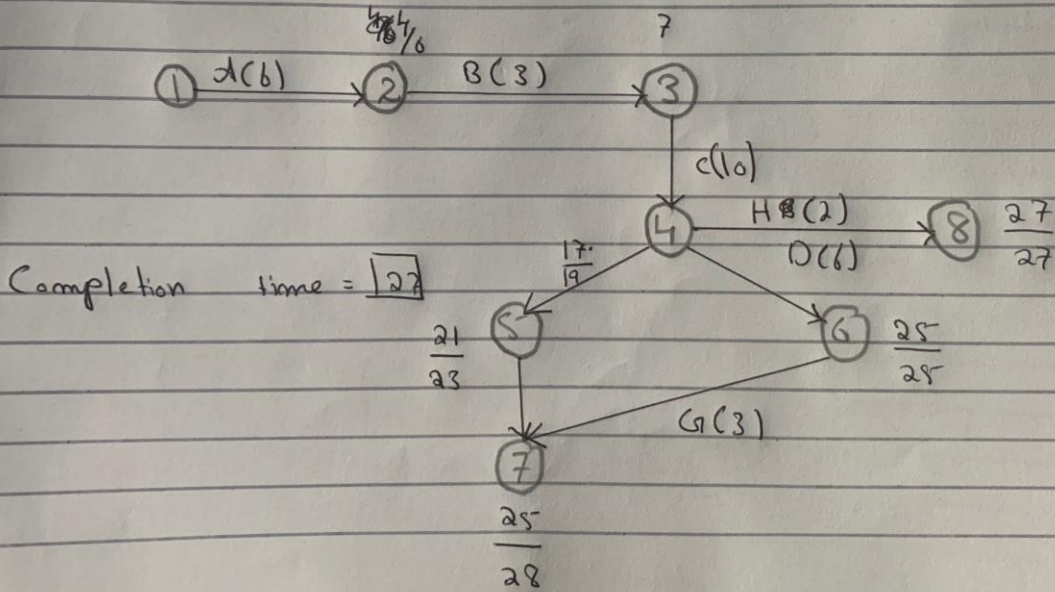 4/6 7
1 A(6) 2 B(3) 3
C(10)
4 H(2) 8 27/27
D(6)
17/19
Completion time = 27
5 6 25/25
21/23
G(3)
7
25/28